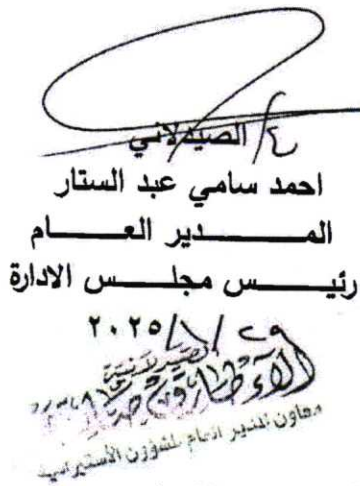 ع/ الصيدلاني
احمد سامي عبد الستار
المدير العام
رئيس مجلس الادارة
٢٠٢٥/١/٢٩
الصيدلانية
الاء طارق
معاون المدير العام للشؤون الأستيرادية